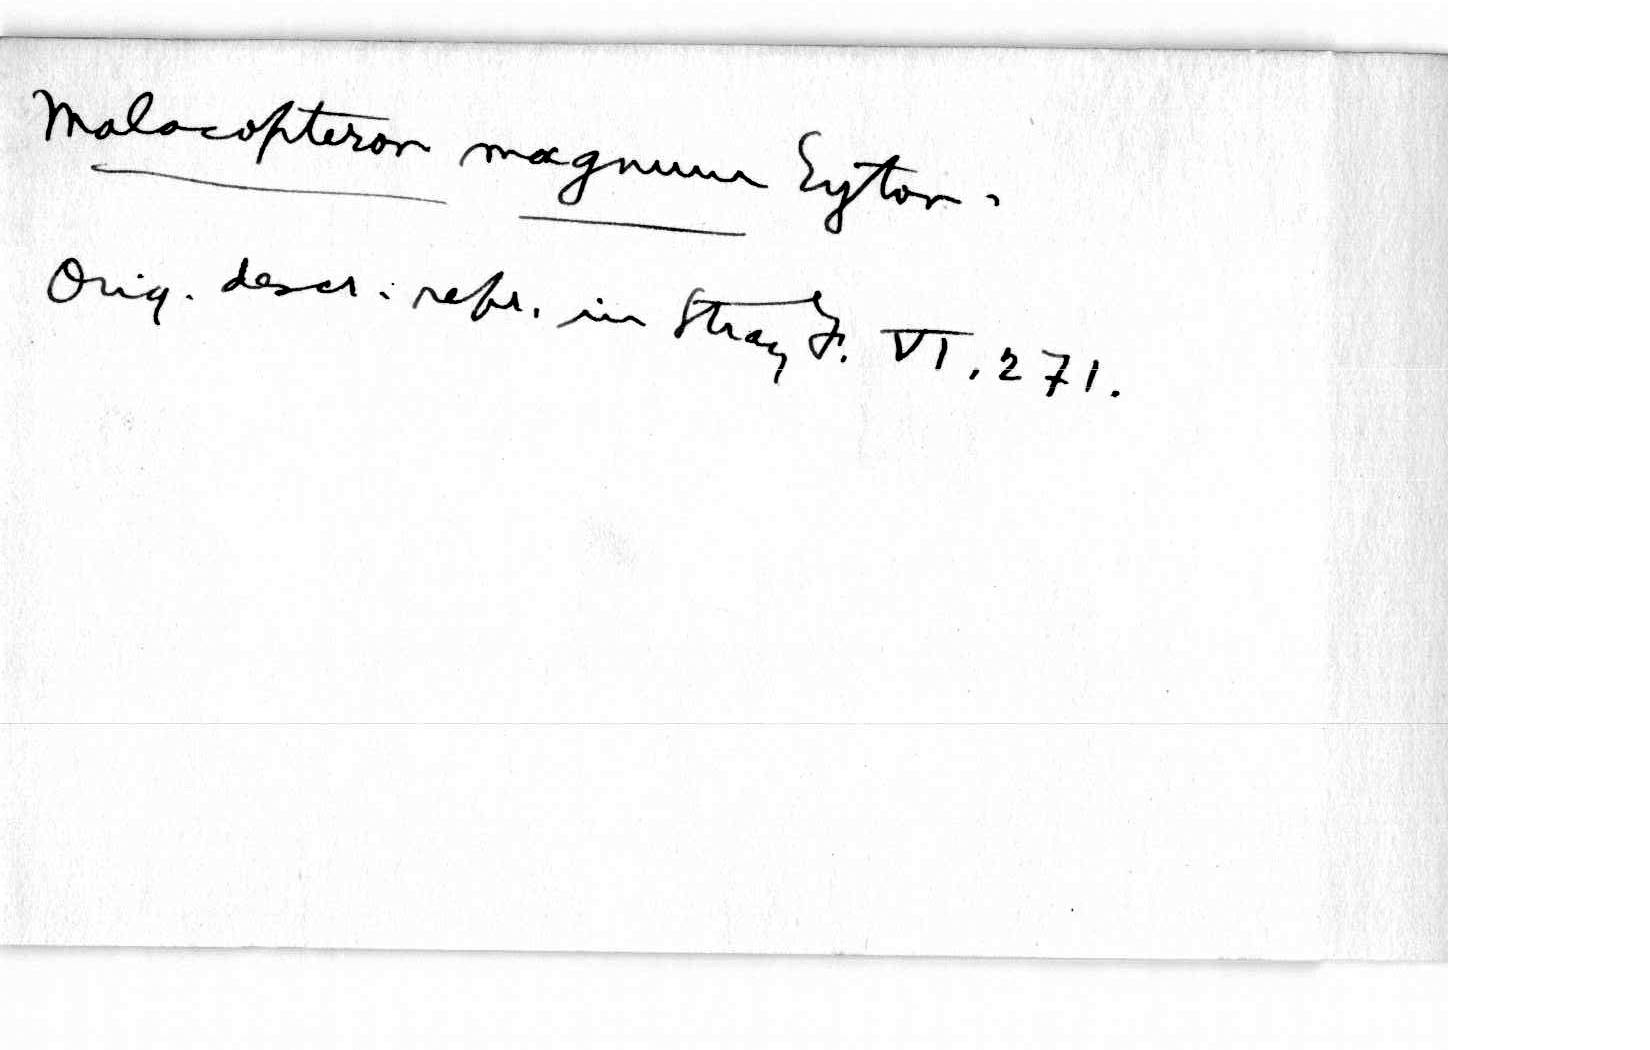 Malacopteron magnum Eyton.
Orig. descr. repr. in Stray F. VI, 271.